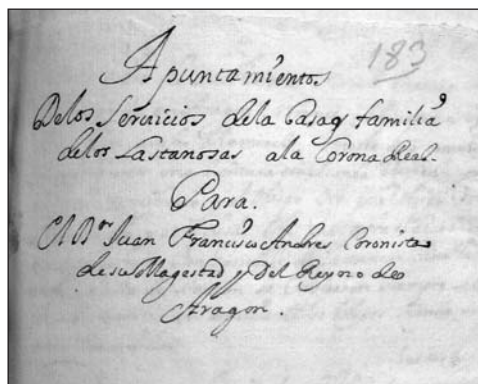 183
Apuntamientos
Delos Seruicios dela Casa y familia
delos Lastanosas ala Corona Real.
Para.
El D.or Juan Francisco Andres Coronista
de su Magestad y Del Reyno de
Aragon.